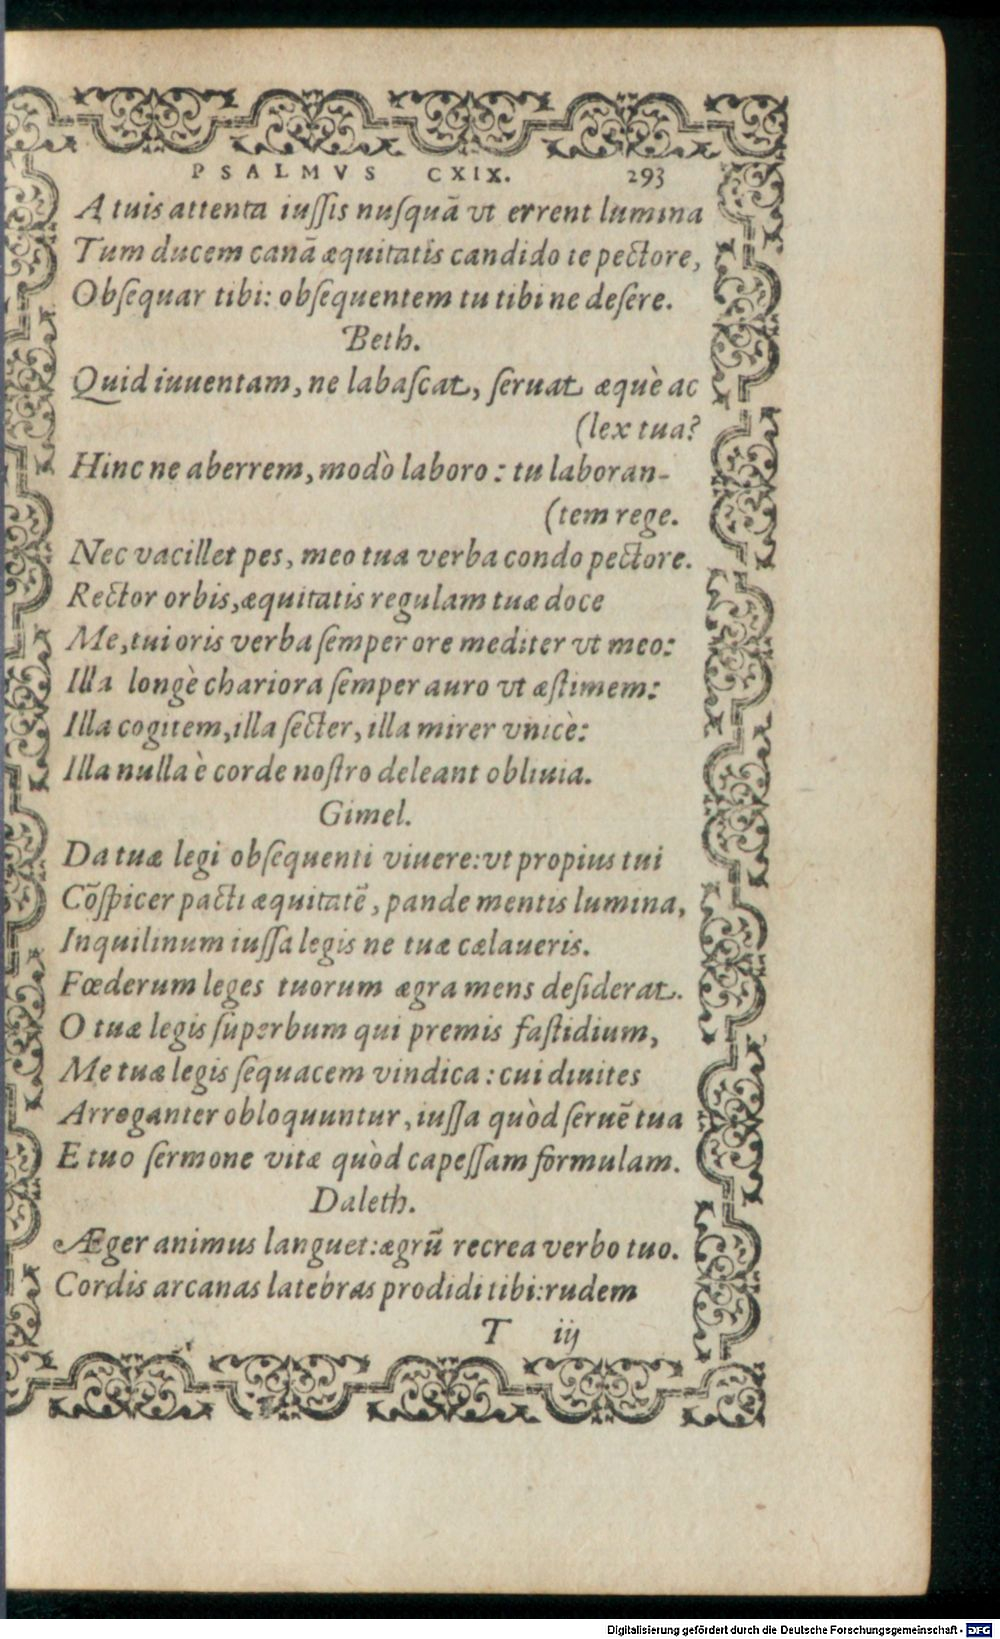 PSALMVS CXIX. 293
A tuis attenta iuſſis nuſquā vt errent lumina
Tum ducem canā æquitatis candido te pectore,
Obſequar tibi: obſequentem tu tibi ne deſere.
Beth.
Quid iuuentam, ne labaſcat, ſeruat æquè ac
(lex tua?
Hinc ne aberrem, modò laboro: tu laboran-
(tem rege.
Nec vacillet pes, meo tua verba condo pectore.
Rector orbis, æquitatis regulam tuæ doce
Me, tui oris verba ſemper ore mediter vt meo:
Illa longè chariora ſemper auro vt æſtimem:
Illa cogitem, illa ſecter, illa mirer vnicè:
Illa nulla è corde noſtro deleant obliuia.
Gimel.
Da tuæ legi obſequenti viuere: vt propius tui
Cōſpicer pacti æquitatē, pande mentis lumina,
Inquilinum iuſſa legis ne tuæ cælaueris.
Fœderum leges tuorum ægra mens deſiderat.
O tuæ legis ſuperbum qui premis faſtidium,
Me tuæ legis ſequacem vindica: cui diuites
Arroganter obloquuntur, iuſſa quòd ſeruē tua
E tuo ſermone vitæ quòd capeſſam formulam.
Daleth.
Æger animus languet: ægrū recrea verbo tuo.
Cordis arcanas latebras prodidi tibi: rudem
T iij
Digitalisierung gefördert durch die Deutsche Forschungsgemeinschaft - DFG